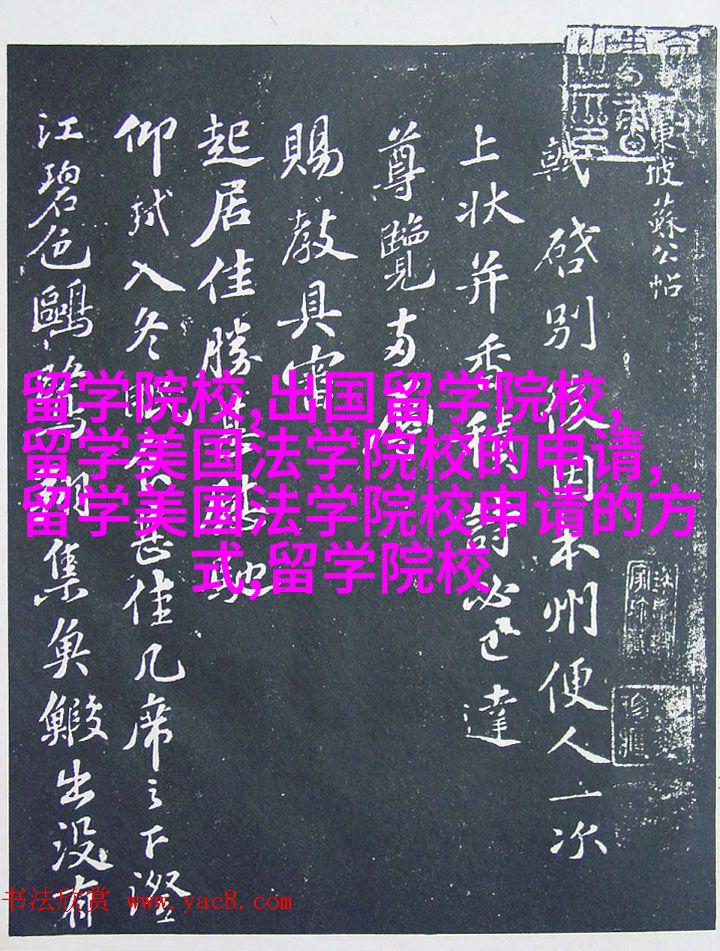 東坡蘇公帖
軾啓別後因本州便人一次
上状并香積詩必已達
尊覽
賜教具審
起居佳勝甚慰馳
仰軾入冬眠食甚佳几席之下澄
江碧色鷗鷺翔集魚鰕出没有
留学院校,出国留学院校,
留学美国法学院校的申请,
留学美国法学院校申请的方
式,留学院校
书法欣赏 www.yac8.com